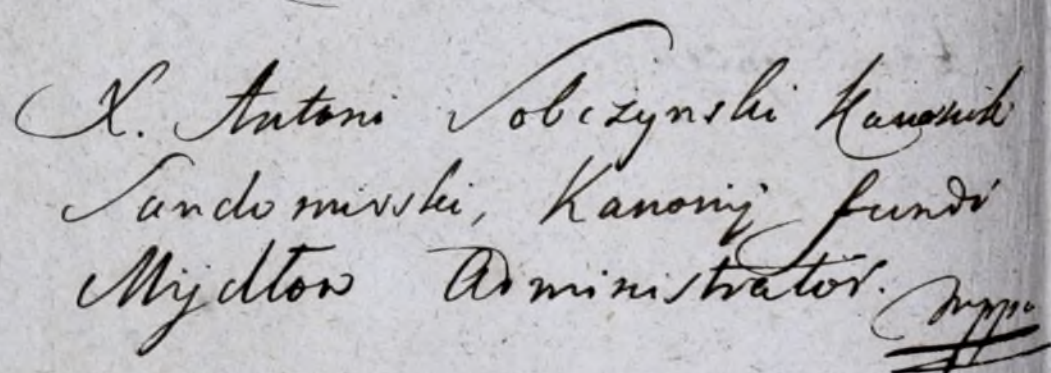 X. Antoni Sobczynski Kanonik
Sandomirski, Kanonij fundi
Mijdłow Administrator. mppa